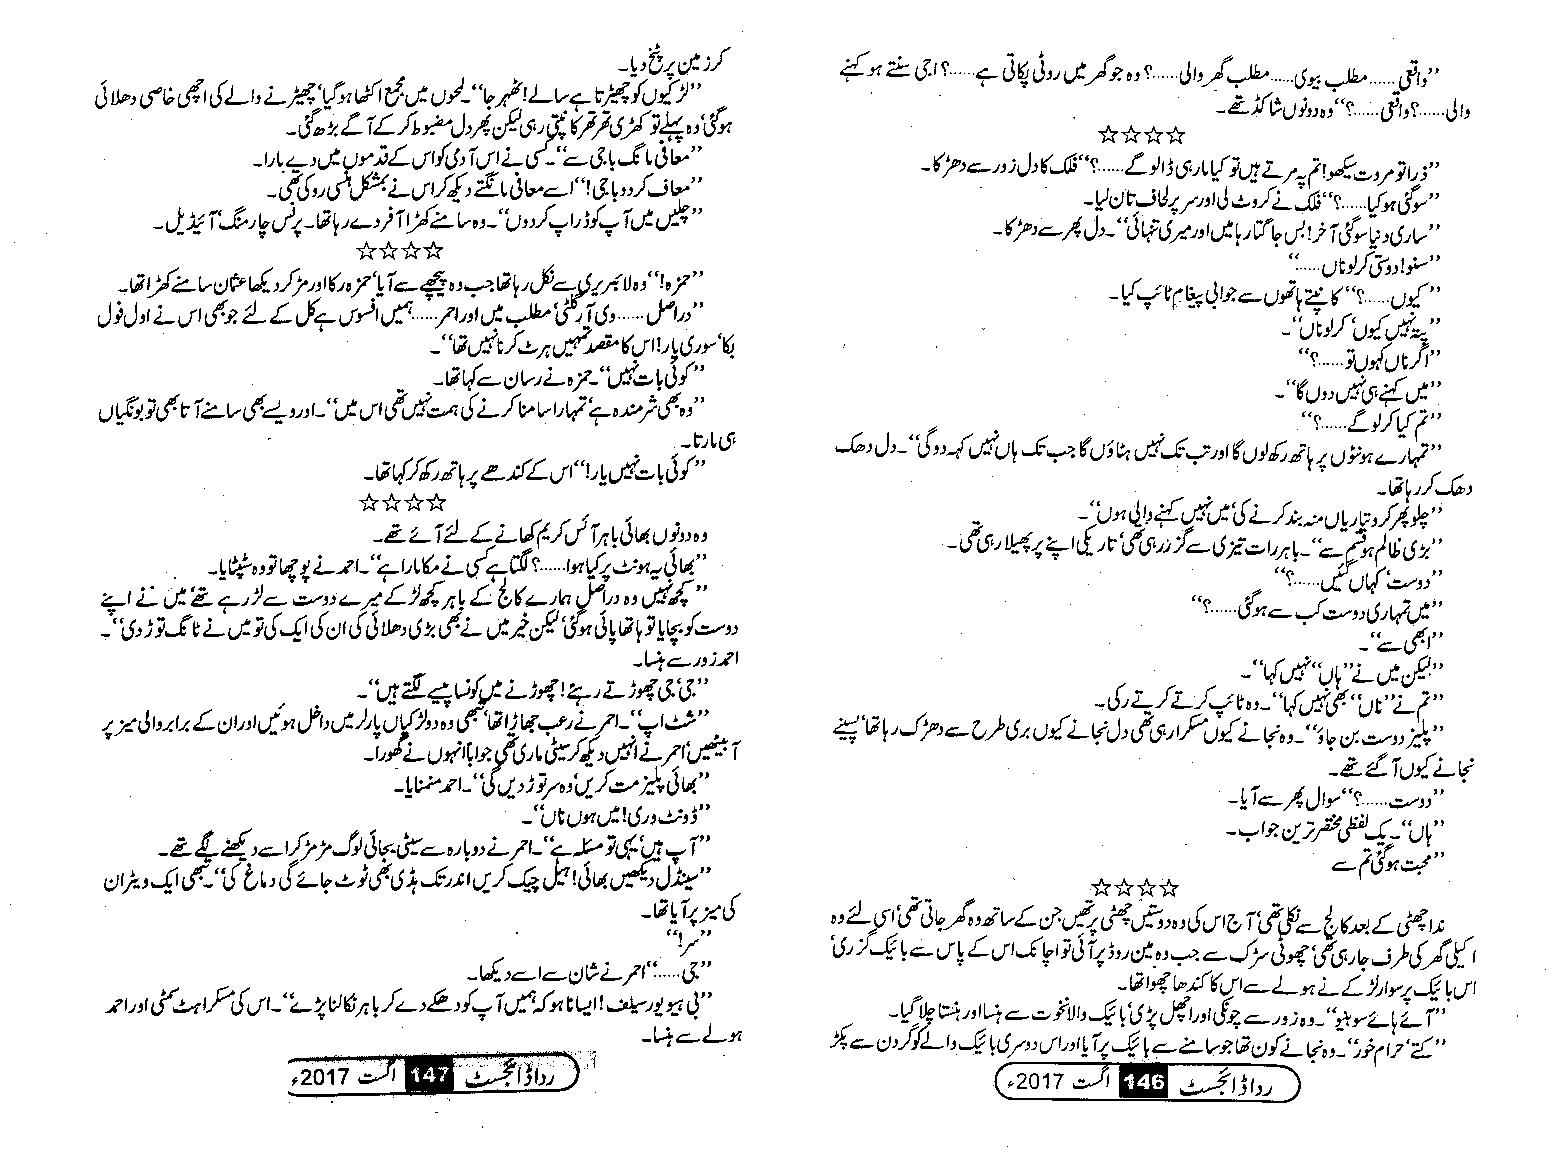 ”واقعی...... مطلب بیوی..... مطلب گھر والی......؟ وہ جو گھر میں روٹی پکاتی ہے......؟ اجی سنتے ہو کہنے
والی......؟ واقعی......؟“ وہ دونوں شاکڈ تھے۔
☆☆☆☆
”ذرا تو مروت سیکھو! تم پہ مرتے ہیں تو کیا مار ہی ڈالو گے......؟“ فلک کا دل زور سے دھڑکا۔
”سو گئی ہو کیا......؟“ فلک نے کروٹ لی اور سر پر لحاف تان لیا۔
”ساری دنیا سو گئی آخر! بس جاگتا رہا میں اور میری تنہائی“۔ دل پھر سے دھڑکا۔
”سنو! دوستی کر لو ناں......“
”کیوں......؟“ کانپتے ہاتھوں سے جوابی پیغام ٹائپ کیا۔
”پتہ نہیں کیوں‘ کر لو ناں“۔
”اگر ناں کہوں تو......؟“
”میں کہنے ہی نہیں دوں گا“۔
”تم کیا کر لو گے......؟“
”تمہارے ہونٹوں پر ہاتھ رکھ لوں گا اور تب تک نہیں ہٹاؤں گا جب تک ہاں نہیں کہہ دو گی“۔ دل دھک
دھک کر رہا تھا۔
”چلو پھر کرو تیاریاں منہ بند کرنے کی‘ میں نہیں کہنے والی ہوں“۔
”بڑی ظالم ہو قسم سے“۔ باہر رات تیزی سے گزر رہی تھی‘ تاریکی اپنے پر پھیلا رہی تھی۔
”دوست‘ کہاں گئیں......؟“
”میں تمہاری دوست کب سے ہو گئی......؟“
”ابھی سے“۔
”لیکن میں نے ”ہاں“ نہیں کہا“۔
”تم نے ”ناں“ بھی نہیں کہا“۔ وہ ٹائپ کرتے کرتے رکی۔
”پلیز دوست بن جاؤ“۔ وہ نجانے کیوں مسکرا رہی تھی دل نجانے کیوں بری طرح سے دھڑک رہا تھا‘ پسینے
نجانے کیوں آ گئے تھے۔
”دوست......؟“ سوال پھر سے آیا۔
”ہاں“۔ یک لفظی مختصر ترین جواب۔
”محبت ہو گئی تم سے
☆☆☆☆
ندا چھٹی کے بعد کالج سے نکلی تھی‘ آج اس کی وہ دوستیں چھٹی پر تھیں جن کے ساتھ وہ گھر جاتی تھی‘ اسی لئے وہ
اکیلی گھر کی طرف جا رہی تھی‘ چھوٹی سڑک سے جب وہ مین روڈ پر آئی تو اچانک اس کے پاس سے بائیک گزری‘
اس بائیک پر سوار لڑکے نے ہولے سے اس کا کندھا چھوا تھا۔
”آئے ہائے سوہنیو“۔ وہ زور سے چونکی اور اچھل پڑی‘ بائیک والا نخوت سے ہنسا اور ہنستا چلا گیا۔
”کتے‘ حرام خور“۔ وہ نجانے کون تھا جو سامنے سے بائیک پر آیا اور اس دوسری بائیک والے کو گردن سے پکڑ
رداڈائجسٹ 146 اگست 2017ء
کر زمین پر پٹخ دیا۔
”لڑکیوں کو چھیڑتا ہے سالے! ٹھہر جا“۔ لمحوں میں مجمع اکٹھا ہو گیا‘ چھیڑنے والے کی اچھی خاصی دھلائی
ہو گئی‘ وہ پہلے تو کھڑی تھر تھر کانپتی رہی لیکن پھر دل مضبوط کر کے آگے بڑھ گئی۔
”معافی مانگ باجی سے“۔ کسی نے اس آدمی کو اس کے قدموں میں دے مارا۔
”معاف کر دو باجی!“ اسے معافی مانگتے دیکھ کر اس نے بمشکل ہنسی روکی تھی۔
”چلیں میں آپ کو ڈراپ کر دوں“۔ وہ سامنے کھڑا آفر دے رہا تھا۔ پرنس چارمنگ‘ آئیڈیل۔
☆☆☆☆
”حمزہ!“ وہ لائبریری سے نکل رہا تھا جب وہ پیچھے سے آیا‘ حمزہ رکا اور مڑ کر دیکھا عثمان سامنے کھڑا تھا۔
”دراصل...... وی آر گلٹی‘ مطلب میں اور احمر...... ہمیں افسوس ہے کل کے لئے جو بھی اس نے اول فول
بکا‘ سوری یار! اس کا مقصد تمہیں ہرٹ کرنا نہیں تھا“۔
”کوئی بات نہیں“۔ حمزہ نے رسان سے کہا تھا۔
”وہ بھی شرمندہ ہے‘ تمہارا سامنا کرنے کی ہمت نہیں تھی اس میں“۔ اور ویسے بھی سامنے آتا بھی تو بونگیاں
ہی مارتا۔
”کوئی بات نہیں یار!“ اس کے کندھے پر ہاتھ رکھ کر کہا تھا۔
☆☆☆☆
وہ دونوں بھائی باہر آئس کریم کھانے کے لئے آئے تھے۔
”بھائی یہ ہونٹ پر کیا ہوا......؟ لگتا ہے کسی نے مکا مارا ہے“۔ احمد نے پوچھا تو وہ سٹپٹایا۔
”کچھ نہیں وہ دراصل ہمارے کالج کے باہر کچھ لڑکے میرے دوست سے لڑ رہے تھے‘ میں نے اپنے
دوست کو بچایا تو ہاتھا پائی ہو گئی‘ لیکن خیر میں نے بھی بڑی دھلائی کی ان کی ایک کی تو میں نے ٹانگ توڑ دی“۔
احمد زور سے ہنسا۔
”جی‘ جی چھوڑتے رہئے! چھوڑنے میں کونسا پیسے لگتے ہیں“۔
”شٹ اپ“۔ احمر نے رعب جھاڑا تھا‘ تبھی وہ دو لڑکیاں پارلر میں داخل ہوئیں اور ان کے برابر والی میز پر
آ بیٹھیں‘ احمر نے انہیں دیکھ کر سیٹی ماری تھی جواباً انہوں نے گھورا۔
”بھائی پلیز مت کریں‘ وہ سر توڑ دیں گی“۔ احمد منمنایا۔
”ڈونٹ وری! میں ہوں ناں“۔
”آپ ہیں‘ یہی تو مسئلہ ہے“۔ احمر نے دوبارہ سے سیٹی بجائی لوگ مڑ مڑ کر اسے دیکھنے لگے تھے۔
”سینڈل دیکھیں بھائی! ہیل چیک کریں اندر تک ہڈی بھی ٹوٹ جائے گی دماغ کی“۔ تبھی ایک ویٹر ان
کی میز پر آیا تھا۔
”سر!“
”جی.....“ احمر نے شان سے اسے دیکھا۔
”بی ہیو یور سیلف! ایسا نا ہو کہ ہمیں آپ کو دھکے دے کر باہر نکالنا پڑے“۔ اس کی مسکراہٹ سمٹی اور احمد
ہولے سے ہنسا۔
رداڈائجسٹ 147 اگست 2017ء